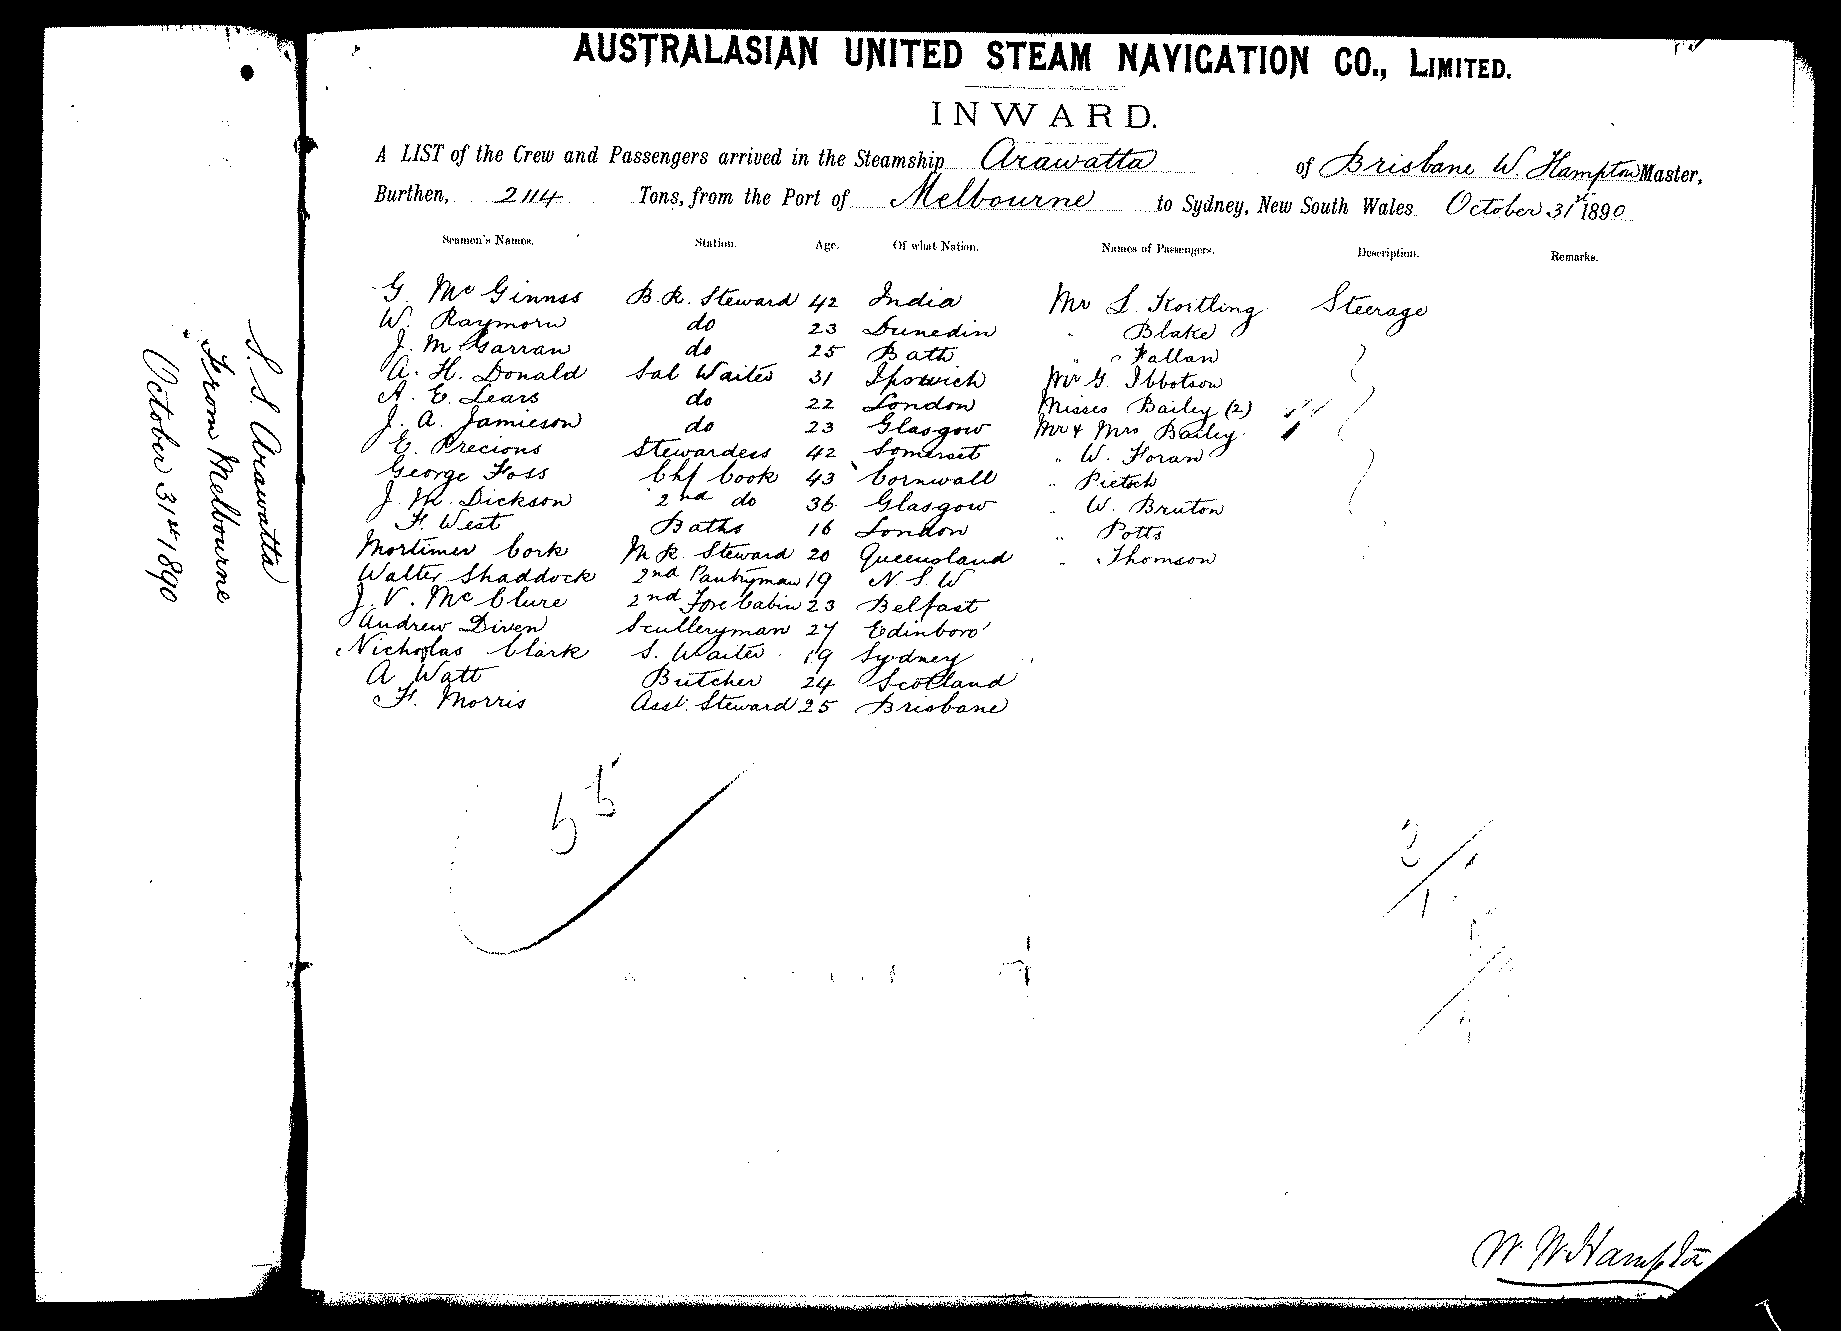 AUSTRALASIAN UNITED STEAM NAVIGATION CO., LIMITED.
INWARD.
A LIST of the Crew and Passengers arrived in the Steamship Arawatta of Brisbane W Hampton Master,
Burthen, 2114 Tons, from the Port of Melbourne to Sydney, New South Wales October 31st 1890
Seamen's Names. Station. Age. Of what Nation. Names of Passengers. Description. Remarks.
G. McGinnss B.R. Steward 42 India Mr L. Steerage
W. Raymorn do 23 Dunedin " Blake
J. M Garran do 25 Bath " " Fallan
A. H. Donald Sal Waiter 31 Ipswich Mr G. Ibbotson
A. E. Lears do 22 London Misses Bailey (2)
J. A. Jamieson do 23 Glasgow Mr & Mrs Bailey
E. Precious Stewardess 42 Somerset " W. Foran
George Foss Chf Cook 43 Cornwall " Pietsch
J. M. Dickson 2nd do 36 Glasgow " W. Bruton
F. West Baths 16 London " Potts
Mortimer Cork M R. Steward 20 Queensland " Thomson
Walter Shaddock 2nd Pantryman 19 N. S. W
J. V. McClure 2nd Fore Cabin 23 Belfast
Andrew Diven Sculleryman 27 Edinboro'
Nicholas Clark S. Waiter 19 Sydney
A Watt Butcher 24 Scotland
F. Morris Asst. Steward 25 Brisbane
55
W. W. Hampton
S. S. Arawatta
From Melbourne
October 31st 1890